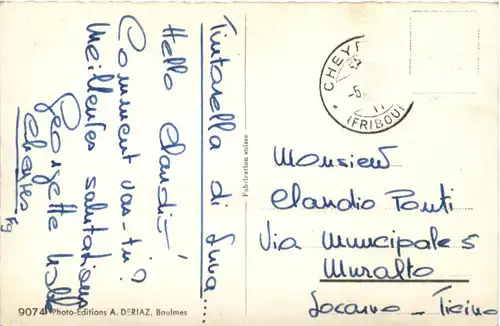 Tintarella di Luna...
Hello Claudio
Comment vas-tu?
Meilleures salutations
Georgette
Cheyres
Fg
9074 Photo-Editions A. DERIAZ, Baulmes
Fabrication suisse
CHEYR
(FRIBOU
Monsieur
Claudio Ponti
Via Municipale 5
Muralto
Locarno - Ticino